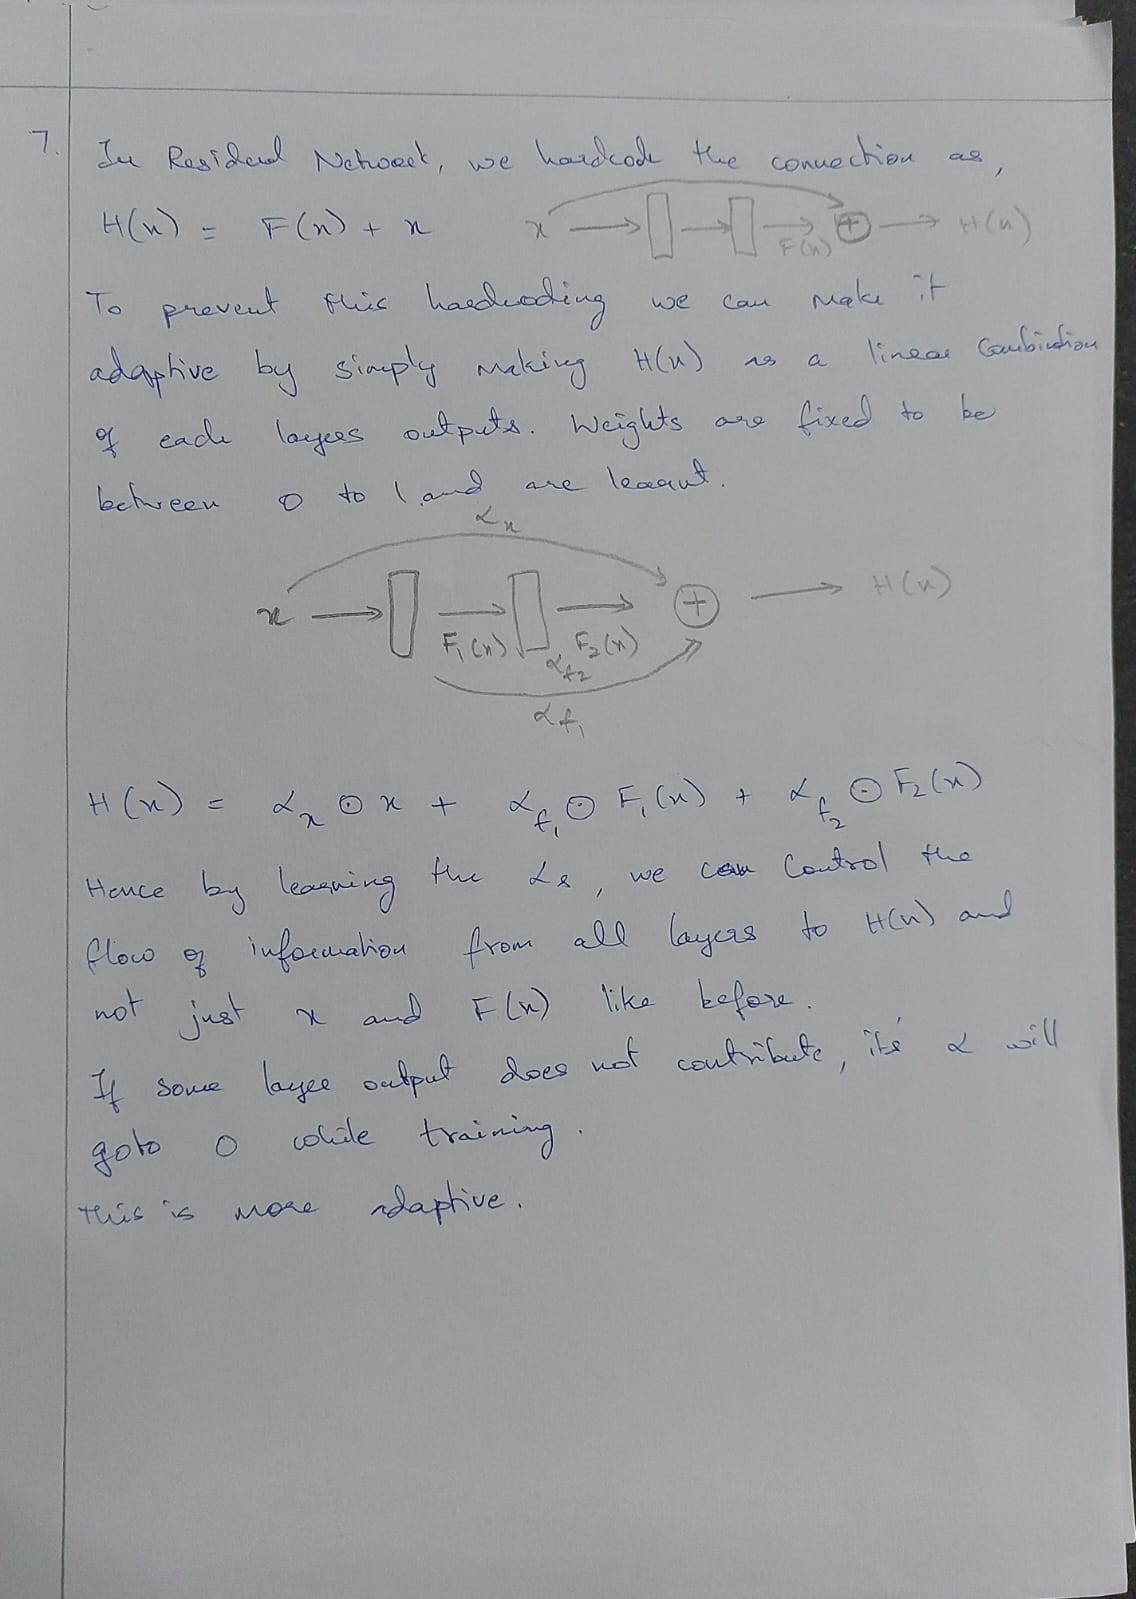 7.
In Residual Network, we hardcode the connection as,
H(x) = F(x) + x
x F(x) + H(x)
To prevent this hardcoding we can make it
adaptive by simply making H(x) as a linear combination
of each layers outputs. Weights are fixed to be
between 0 to 1 and are learnt.
αx
x F₁(x) F₂(x) + H(x)
αf₂
αf₁
H(x) = αx ⊙ x + αf₁ ⊙ F₁(x) + αf₂ ⊙ F₂(x)
Hence by learning the αs, we can control the
flow of information from all layers to H(x) and
not just x and F(x) like before.
If some layer output does not contribute, its' α will
goto 0 while training.
This is more adaptive.